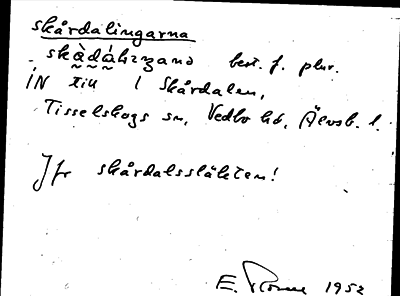 skårdalingarna
skàdáliŋana best. f. plur.
IN till 1 Skårdalen,
Tisselskogs sn, Vedbo hd, Älvsb. l.
Jfr skårdalssläkten!
E. 1952